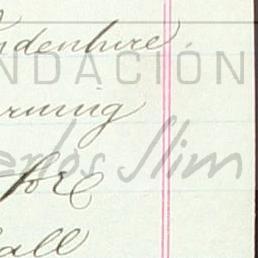 ndenhire
NDACIÓN
rning
arlos Slim
fore
all